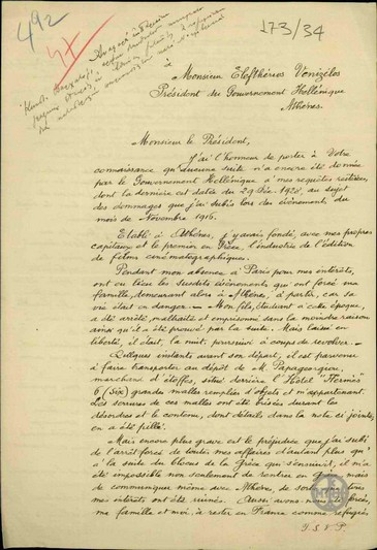 492
173/34
à
Monsieur Elefthérios Vénizélos
Président du Gouvernement Hellénique
Athènes
Monsieur le Président,
J'ai l'honneur de porter à Votre
connaissance qu'aucune suite n'a encore été donnée
par le Gouvernement Hellénique à mes requêtes réitérées,
dont la dernière est datée du 29 Déc. 1928, au sujet
des dommages que j'ai subis lors des événements du
mois de Novembre 1916.
Etabli à Athènes, j'y avais fondé, avec mes propres
capitaux et le premier en Grèce, l'industrie de l'édition
de films cinématographiques.
Pendant mon absence à Paris pour mes intérêts,
ont eu lieu les susdits événements qui ont forcé ma
famille, demeurant alors à Athènes, à partir, car sa
vie était en danger.— Mon fils, étudiant à cette époque,
a été arrêté, maltraité et emprisonné sans la moindre raison
ainsi qu'il a été prouvé par la suite. Mais laissé en
liberté, il était, la nuit, poursuivi à coups de revolver.—
Quelques instants avant son départ, il est parvenu
à faire transporter au dépôt de M. Papageorgiou,
marchand d'étoffes, situé derrière l'Hôtel "Hermès"
6 (six) grandes malles remplies d'objets et m'appartenant.
Les serrures de ces malles ont été brisées durant les
désordres et le contenu, dont détails dans la note ci-jointe,
en a été pillé.
Mais encore plus grave est le préjudice que j'ai subi
de l'arrêt forcé de toutes mes affaires d'autant plus qu'
à la suite du blocus de la Grèce qui s'ensuivit, il m'a
été impossible non seulement de rentrer en Grèce mais
de communiquer même avec Athènes, de sorte que tous
mes intérêts ont été ruinés. Aussi avons nous été forcés,
ma famille et moi, à rester en France comme réfugiés
T.S.V.P.